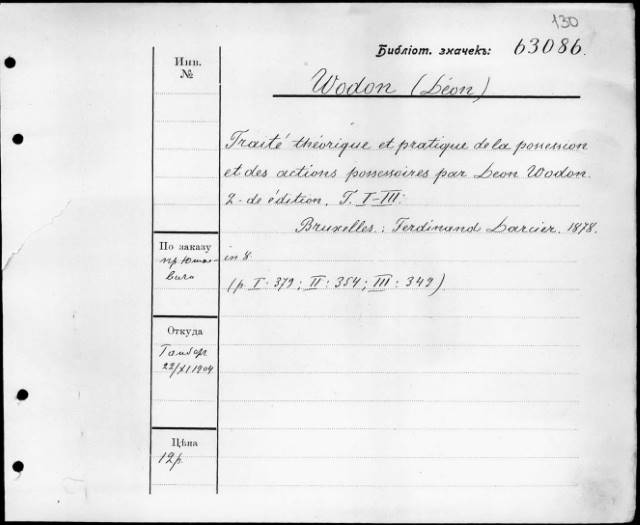 130
Библіот. значекъ: 63086.
Инв.
№
Wodon (Léon)
Traité théorique et pratique de la possession
et des actions possessoires par Léon Wodon.
2-de édition. T. I-III:
Bruxelles.; Ferdinand Larcier. 1878.
По заказу
in 8.
(p. I: 379; II: 354; III: 349)
Откуда
22/XI 1904
Цѣна
12 р.